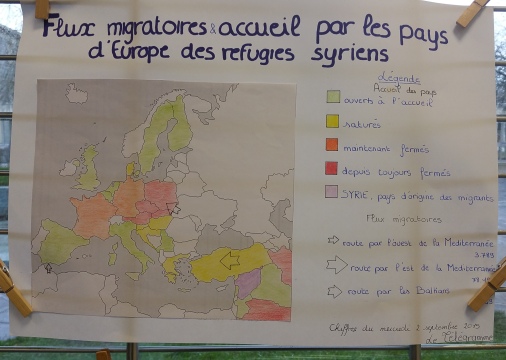 Flux migratoires & accueil par les pays
d'Europe des refugies syriens
Légende
Accueil du pays
ouverts à l'accueil
saturés
maintenant fermés
depuis toujours fermés
SYRIE, pays d'origine des migrants
Flux migratoires
route par l'ouest de la Mediterranée
3.789
route par l'est de la Mediterranée
route par les Balkans
Chiffres du mercredi 2 septembre 2015
Le Télégramme